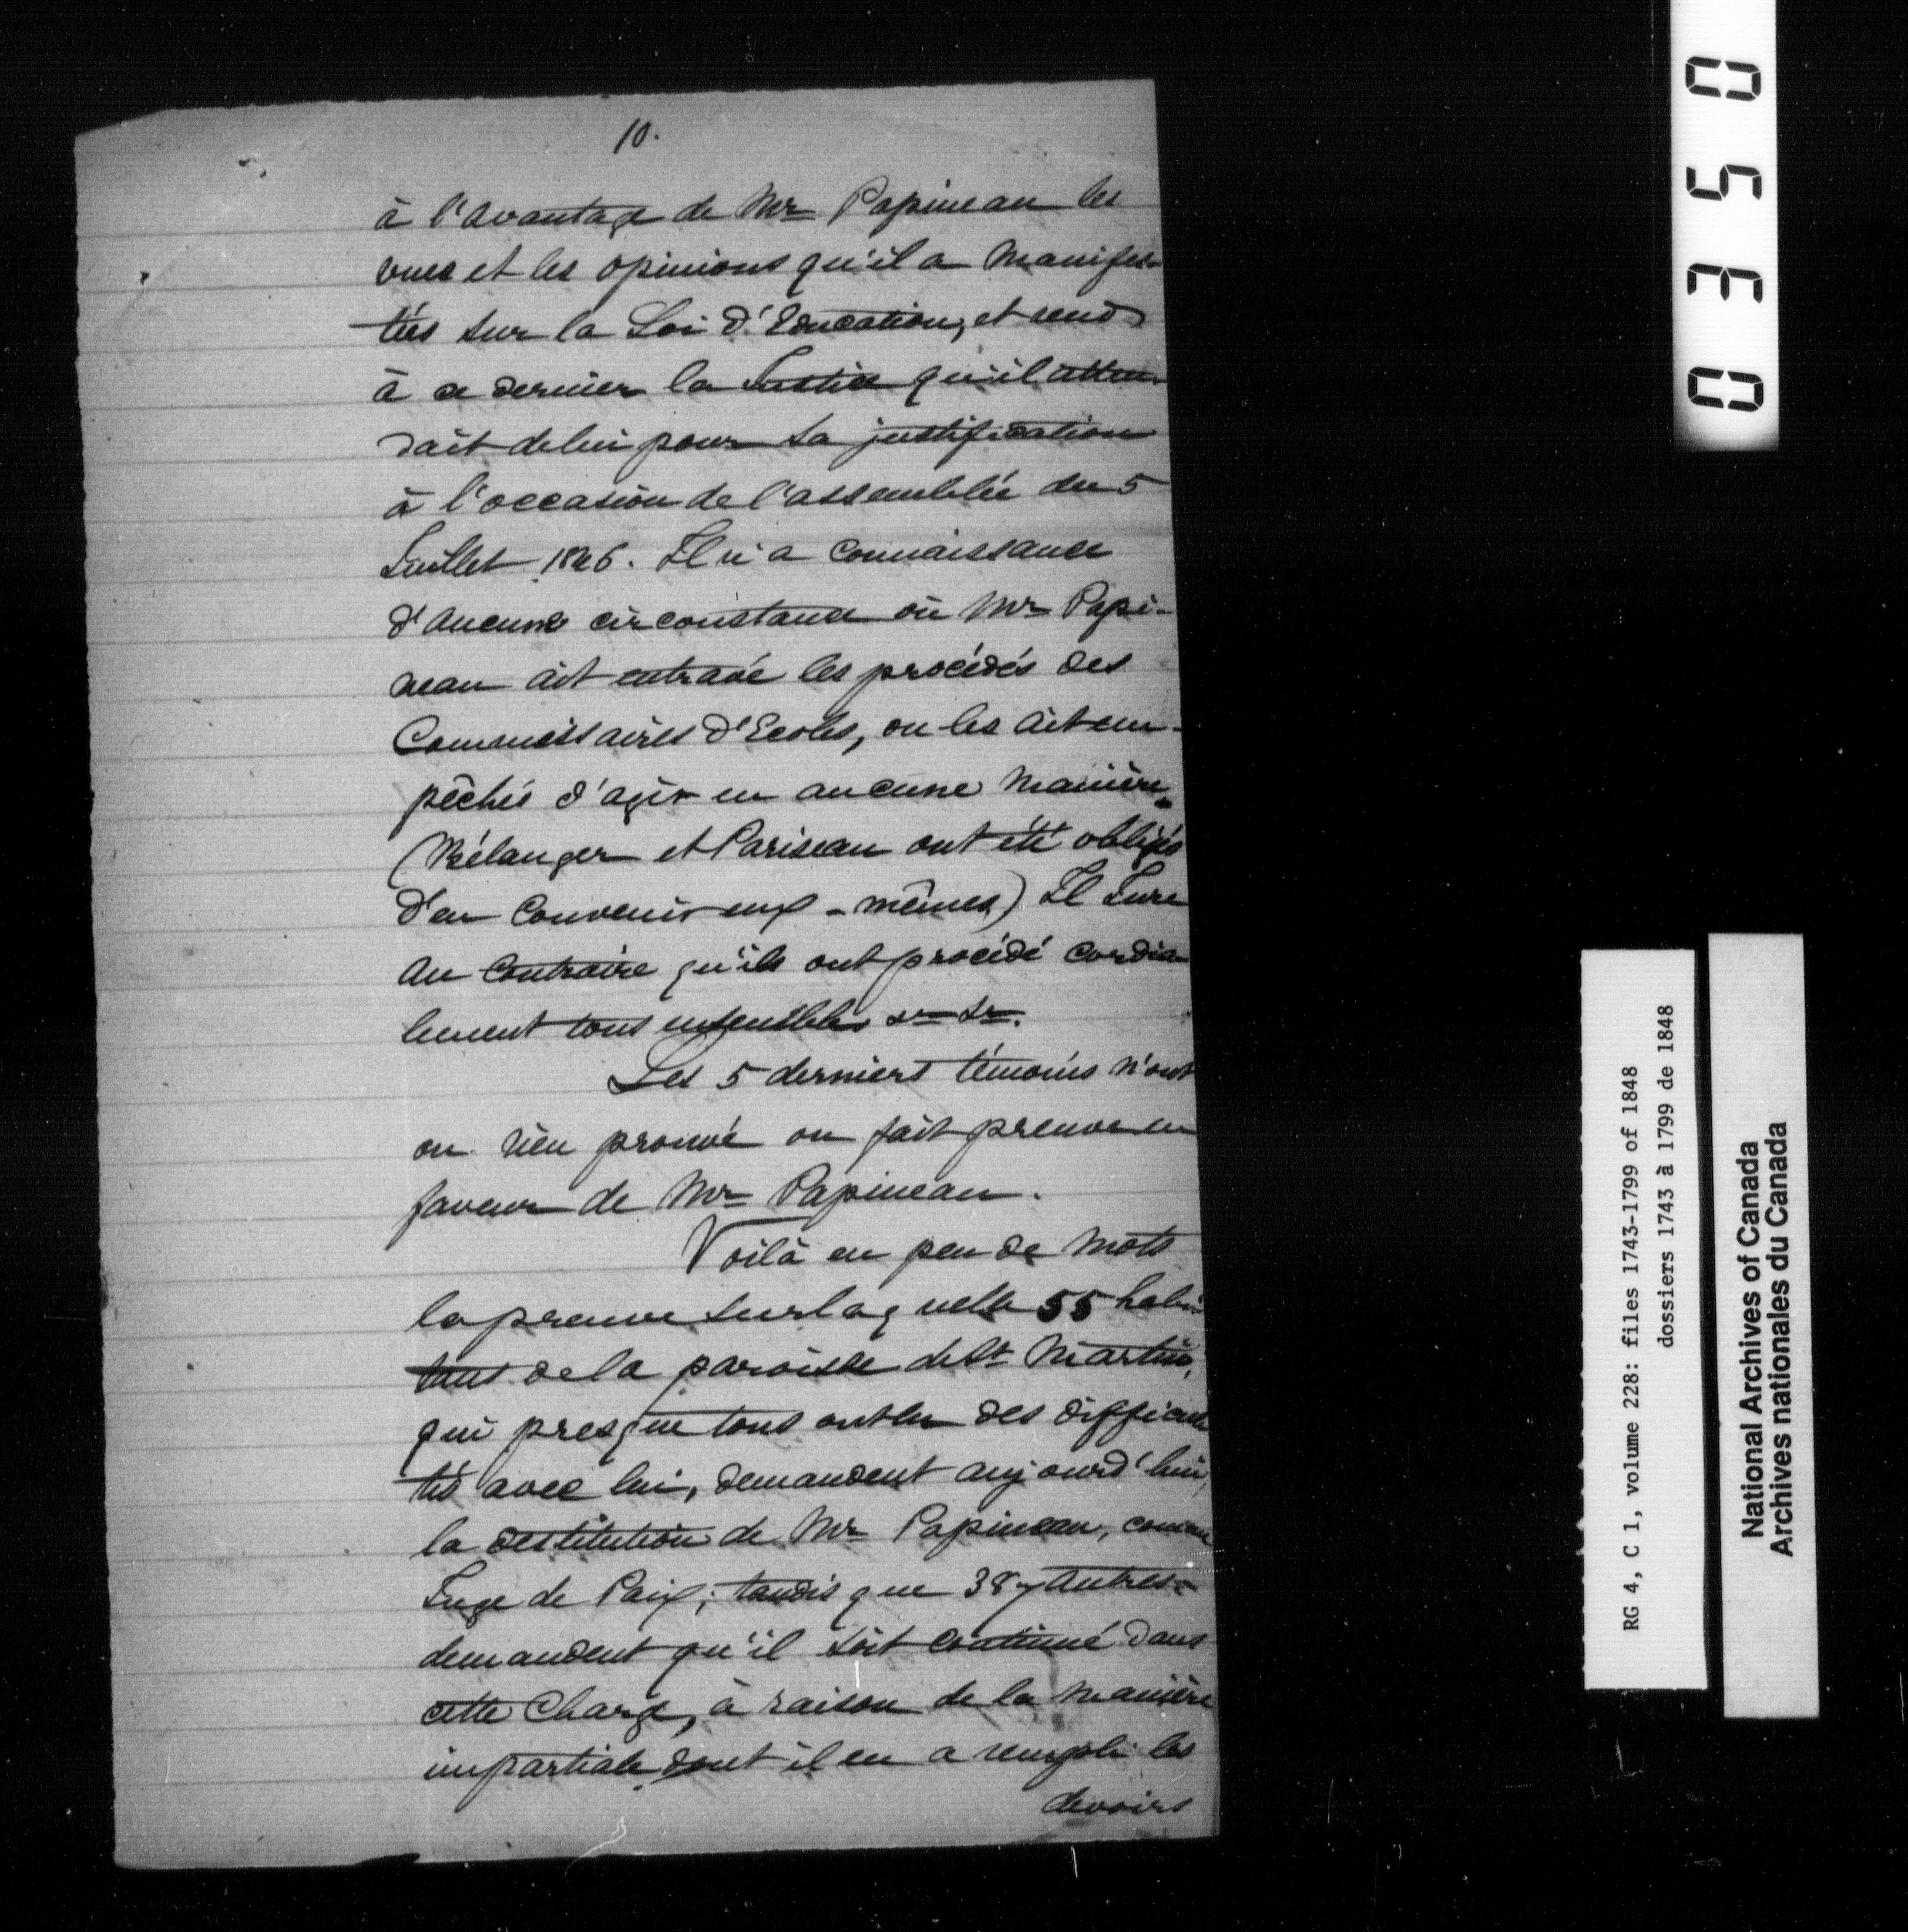 10.
à l'avantage de Mr Papineau les
vues et les opinions qu'il a manifes-
tés sur la Loi d'Education, et rend
à ce dernier la Justice qu'il atten-
dait de lui pour sa justification
à l'occasion de l'assemblée du 5
Juillet 1846. Il n'a connaissance
d'aucune circonstance où Mr Papi-
neau ait entravé les procédés des
Commissaires d'Ecoles, ou les ait em-
pêchés d'agir en aucune manière.
(Mélanger et Pariseau ont été obligés
d'en convenir eux-mêmes) Il Jure
au contraire qu'ils ont procédé cordia
lement tous ensembles &c &c.
Les 5 derniers témoins n'ont
ou rien prouvé ou fait preuve en
faveur de Mr Papineau.
Voilà en peu de mots
la preuve sur laquelle 55 habi-
tans de la paroisse de St Martin,
qui presque tous ont eu des difficul
tés avec lui, demandent aujourd'hui,
la destitution de Mr Papineau, comme
Juge de Paix; tandis que 387 autres
demandent qu'il soit continué dans
cette Charge, à raison de la manière
impartiale dont il en a rempli les
devoirs
0350
RG 4, C 1, volume 228: files 1743-1799 of 1848
dossiers 1743 à 1799 de 1848
National Archives of Canada
Archives nationales du Canada